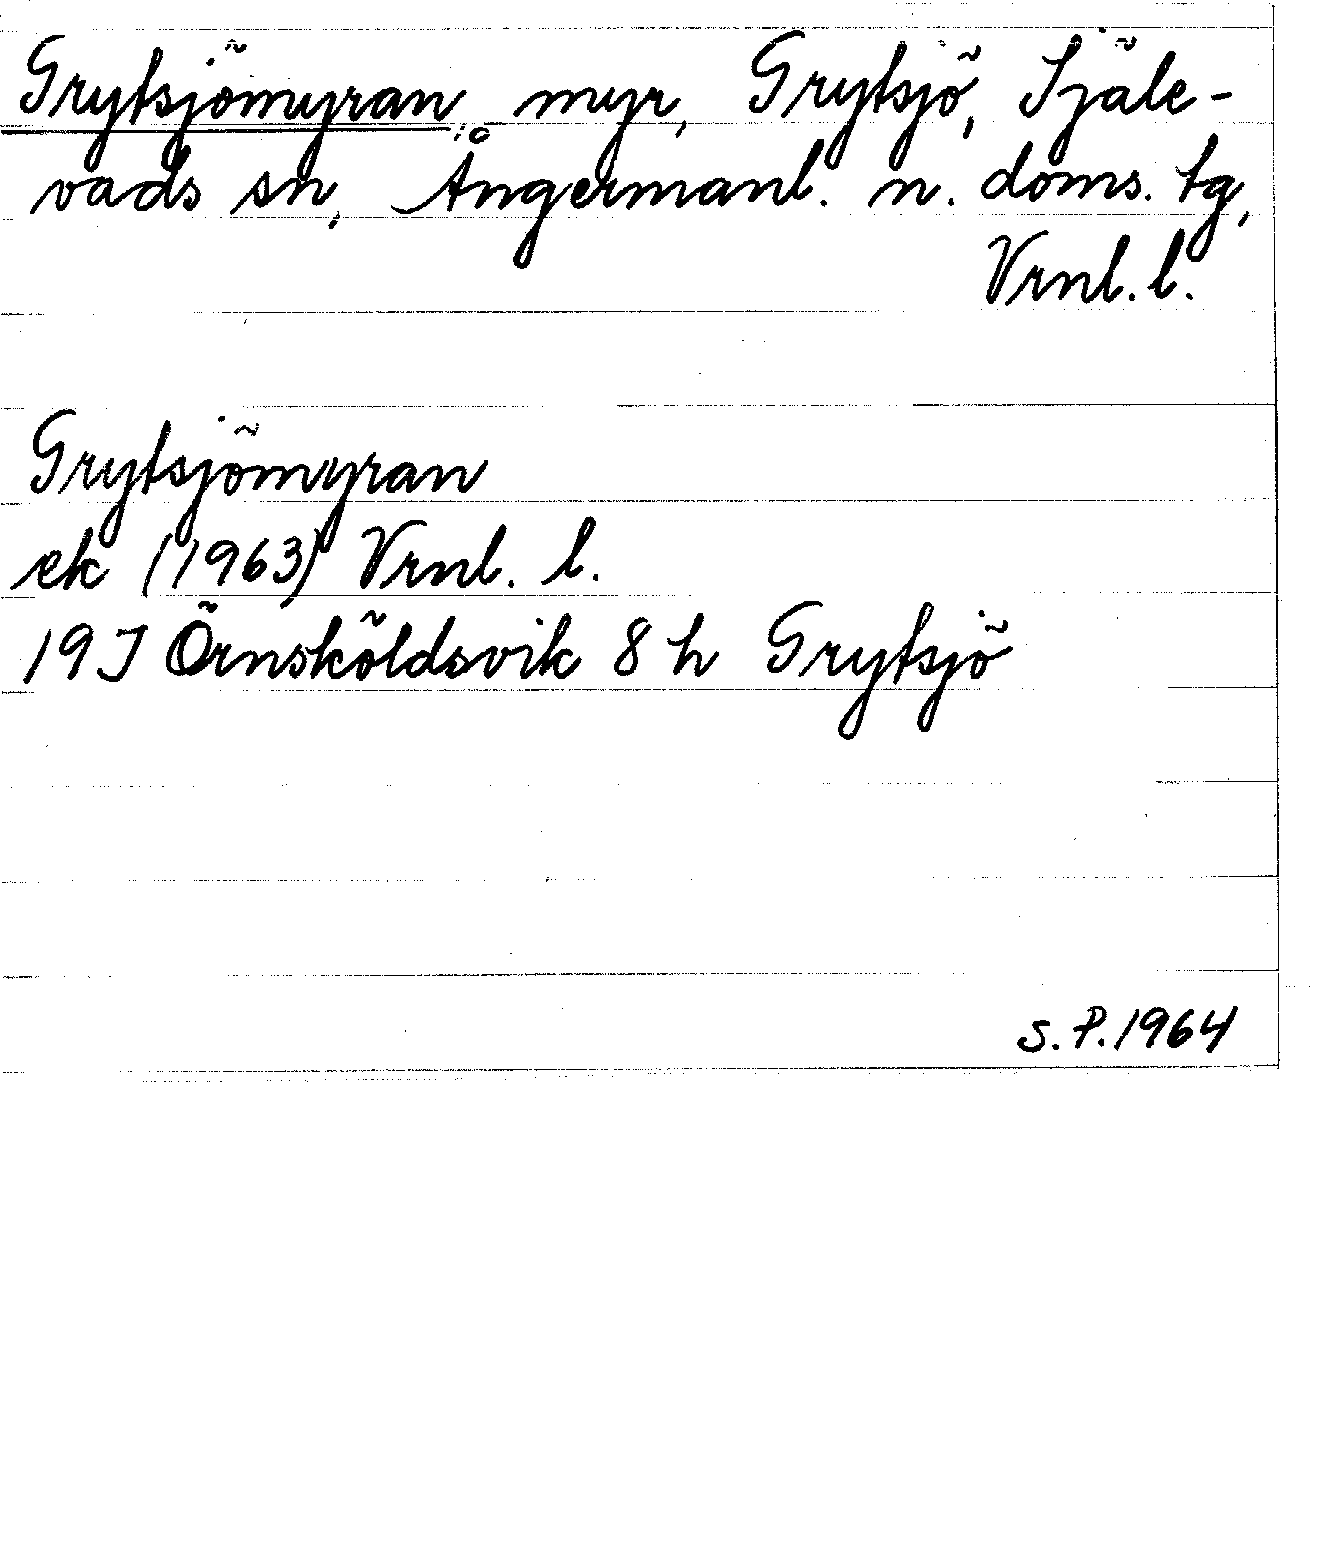 Grytsjömyran, myr, Grytsjö, Själe-
vads sn, Ångermanl. n. doms. tg,
Vrnl. l.
Grytsjömyran
ek (1963) Vrnl. l.
19J Örnsköldsvik 8 h Grytsjö
S.P. 1964